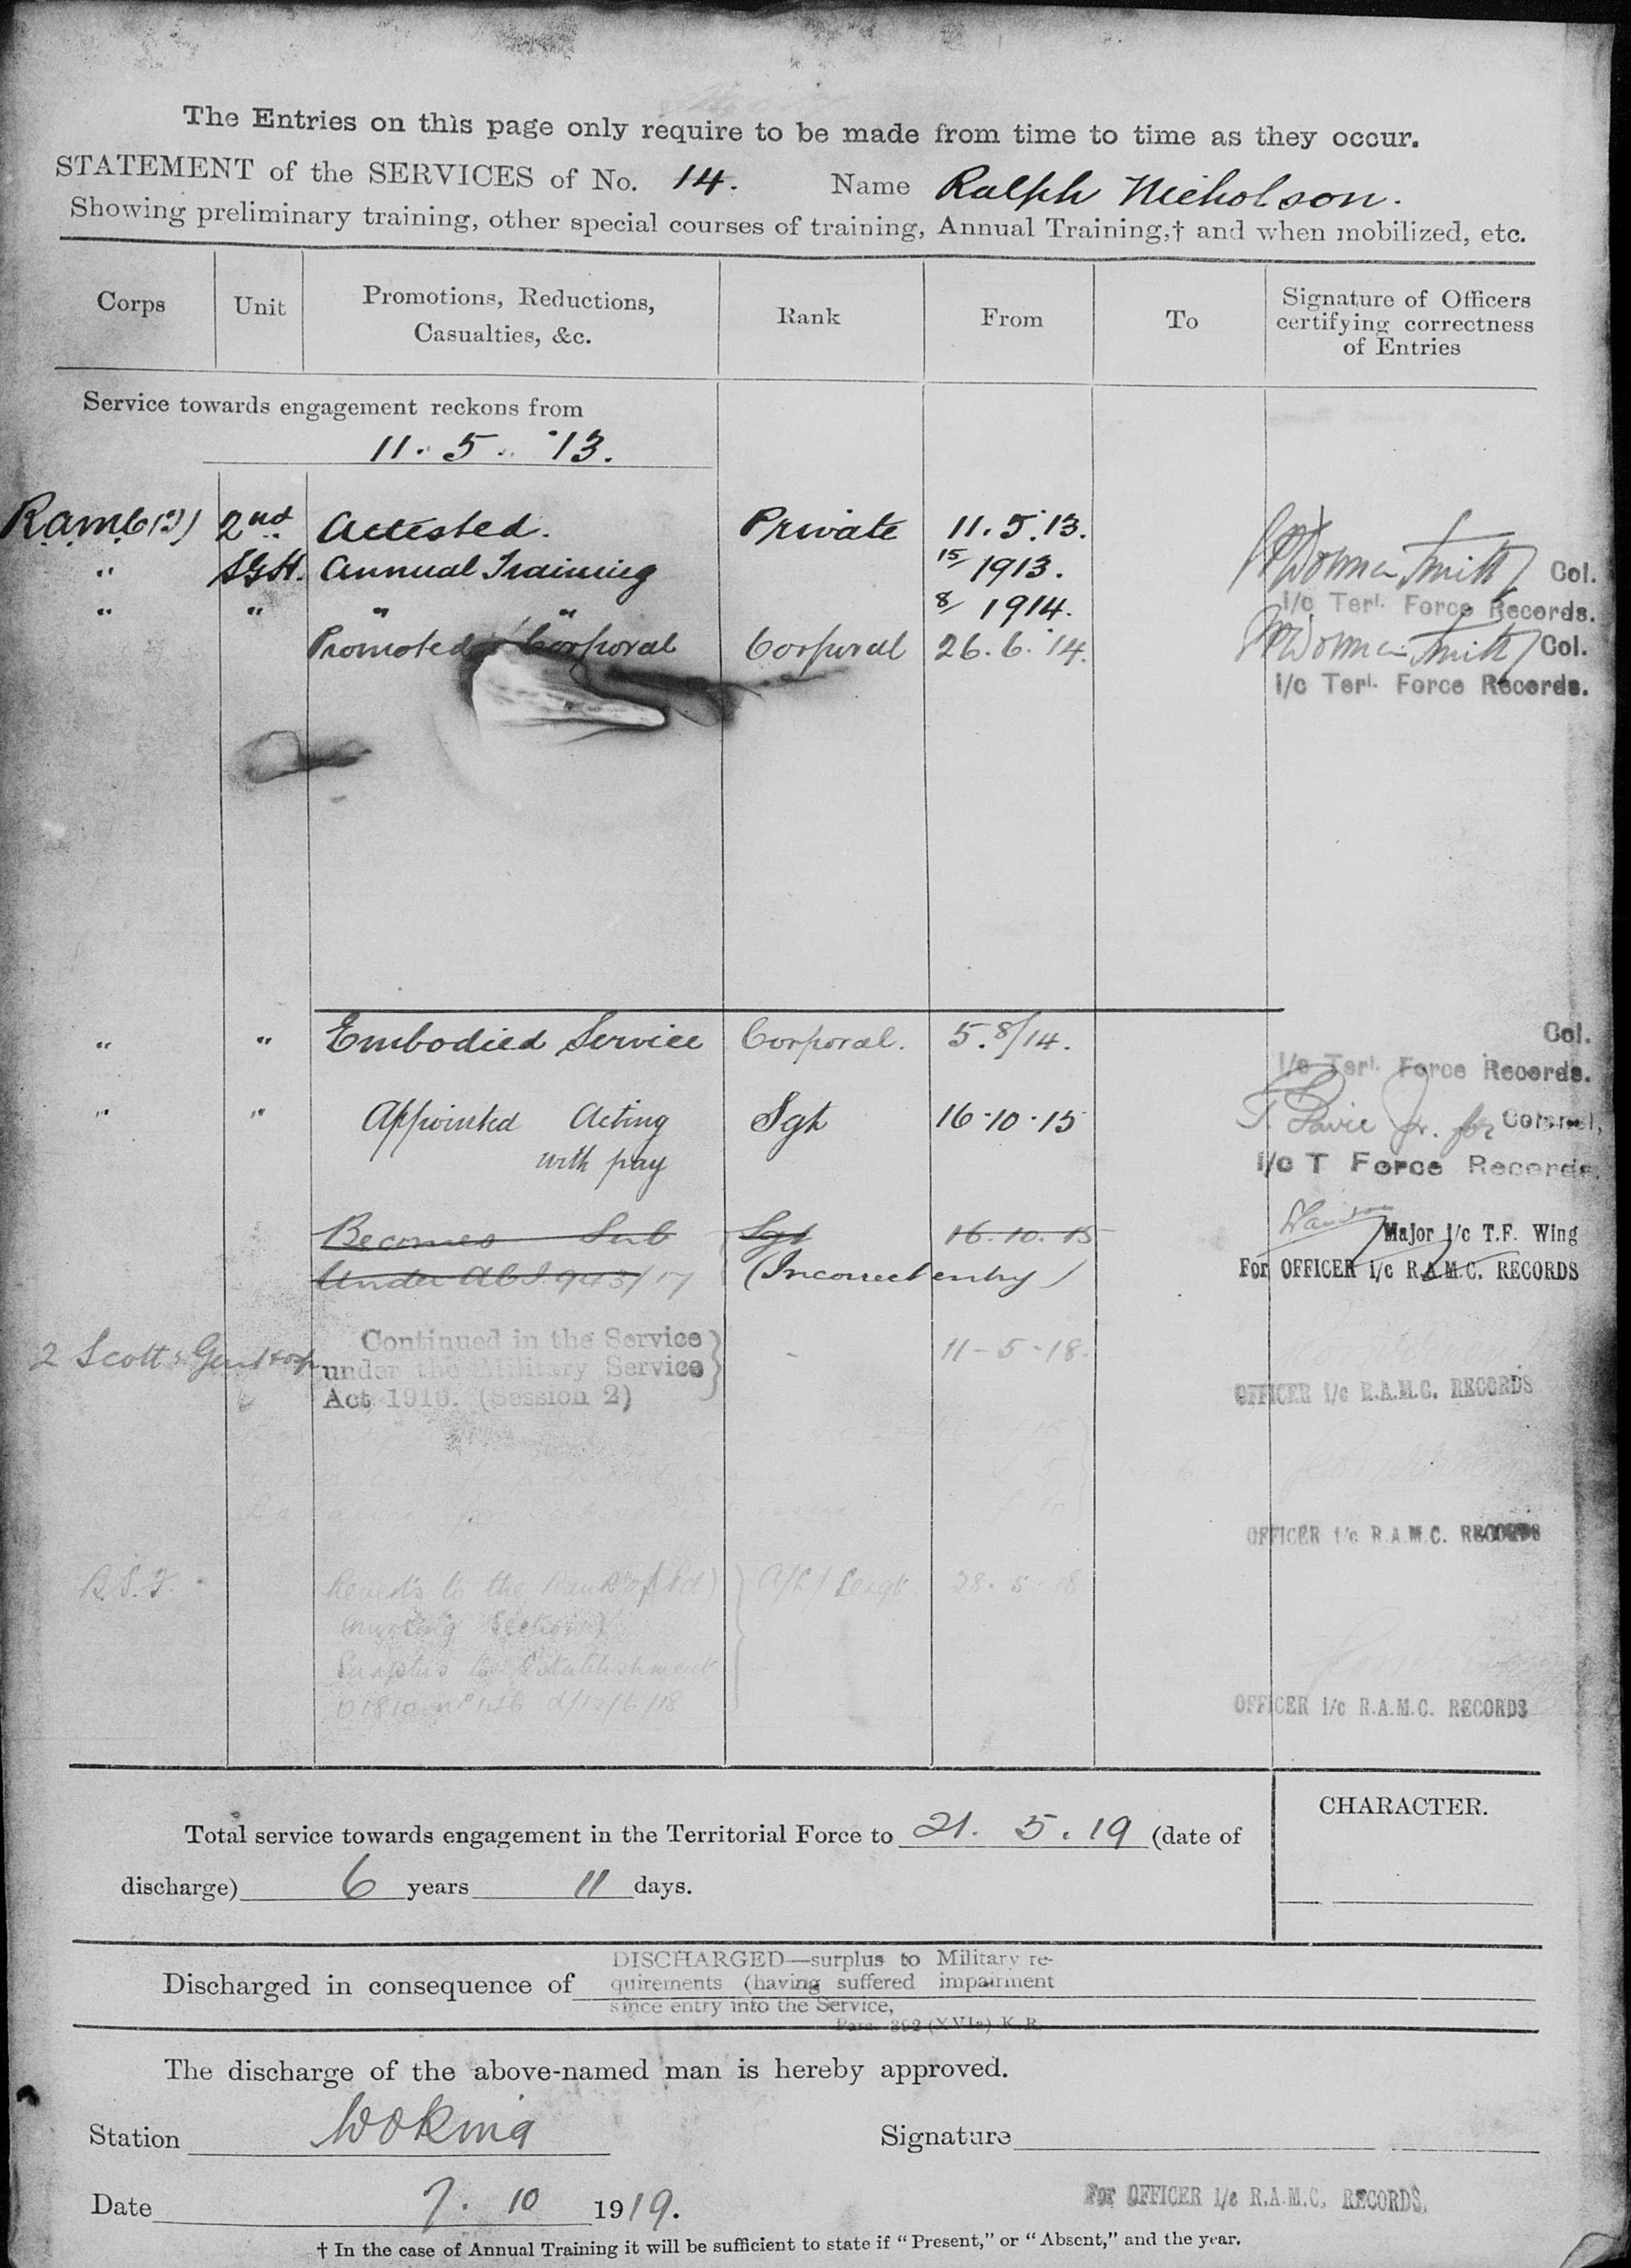 The Entries on this page only require to be made from time to time as they occur.
STATEMENT of the SERVICES of No. 14. Name Ralph Nicholson.
Showing preliminary training, other special courses of training, Annual Training,† and when mobilized, etc.
Corps Unit Promotions, Reductions, Casualties, &c. Rank From To Signature of Officers certifying correctness of Entries
Service towards engagement reckons from
11. 5. '13.
2nd Attested. Private 11. 5. 13.
" SGH. Annual Training 15/ 1913. Col.
" " " " 8/ 1914. i/c Terl. Force Records.
Promoted Corporal Corporal 26. 6. '14. Col.
i/c Terl. Force Records.
" " Embodied Service Corporal. 5. 8/14. Col.
i/c Terl. Force Records.
" " Appointed Acting Sgt 16·10·15 for Colonel,
with pay i/c T Force Records.
Becomes Sub Sgt 16. 10. 15 Major i/c T.F. Wing
Under 943/17 (Incorrect entry) For OFFICER i/c R.A.M.C. RECORDS
2 Scott. Genl Hosp Continued in the Service 11-5-18.
under the Military Service
Act 1916. (Session 2) OFFICER i/c R.A.M.C. RECORDS
OFFICER i/c R.A.M.C. RECORDS
Reverts to the Rank of 28. 5. 18
Surplus to Establishment
OFFICER i/c R.A.M.C. RECORDS
Total service towards engagement in the Territorial Force to 21. 5. 19 (date of CHARACTER.
discharge) 6 years 11 days.
Discharged in consequence of DISCHARGED—surplus to Military re-
quirements (having suffered impairment
since entry into the Service,
Para. 392 (XVIa) K.R.
The discharge of the above-named man is hereby approved.
Station Woking Signature
Date 7. 10 1919. For OFFICER i/c R.A.M.C. RECORDS.
† In the case of Annual Training it will be sufficient to state if "Present," or "Absent," and the year.